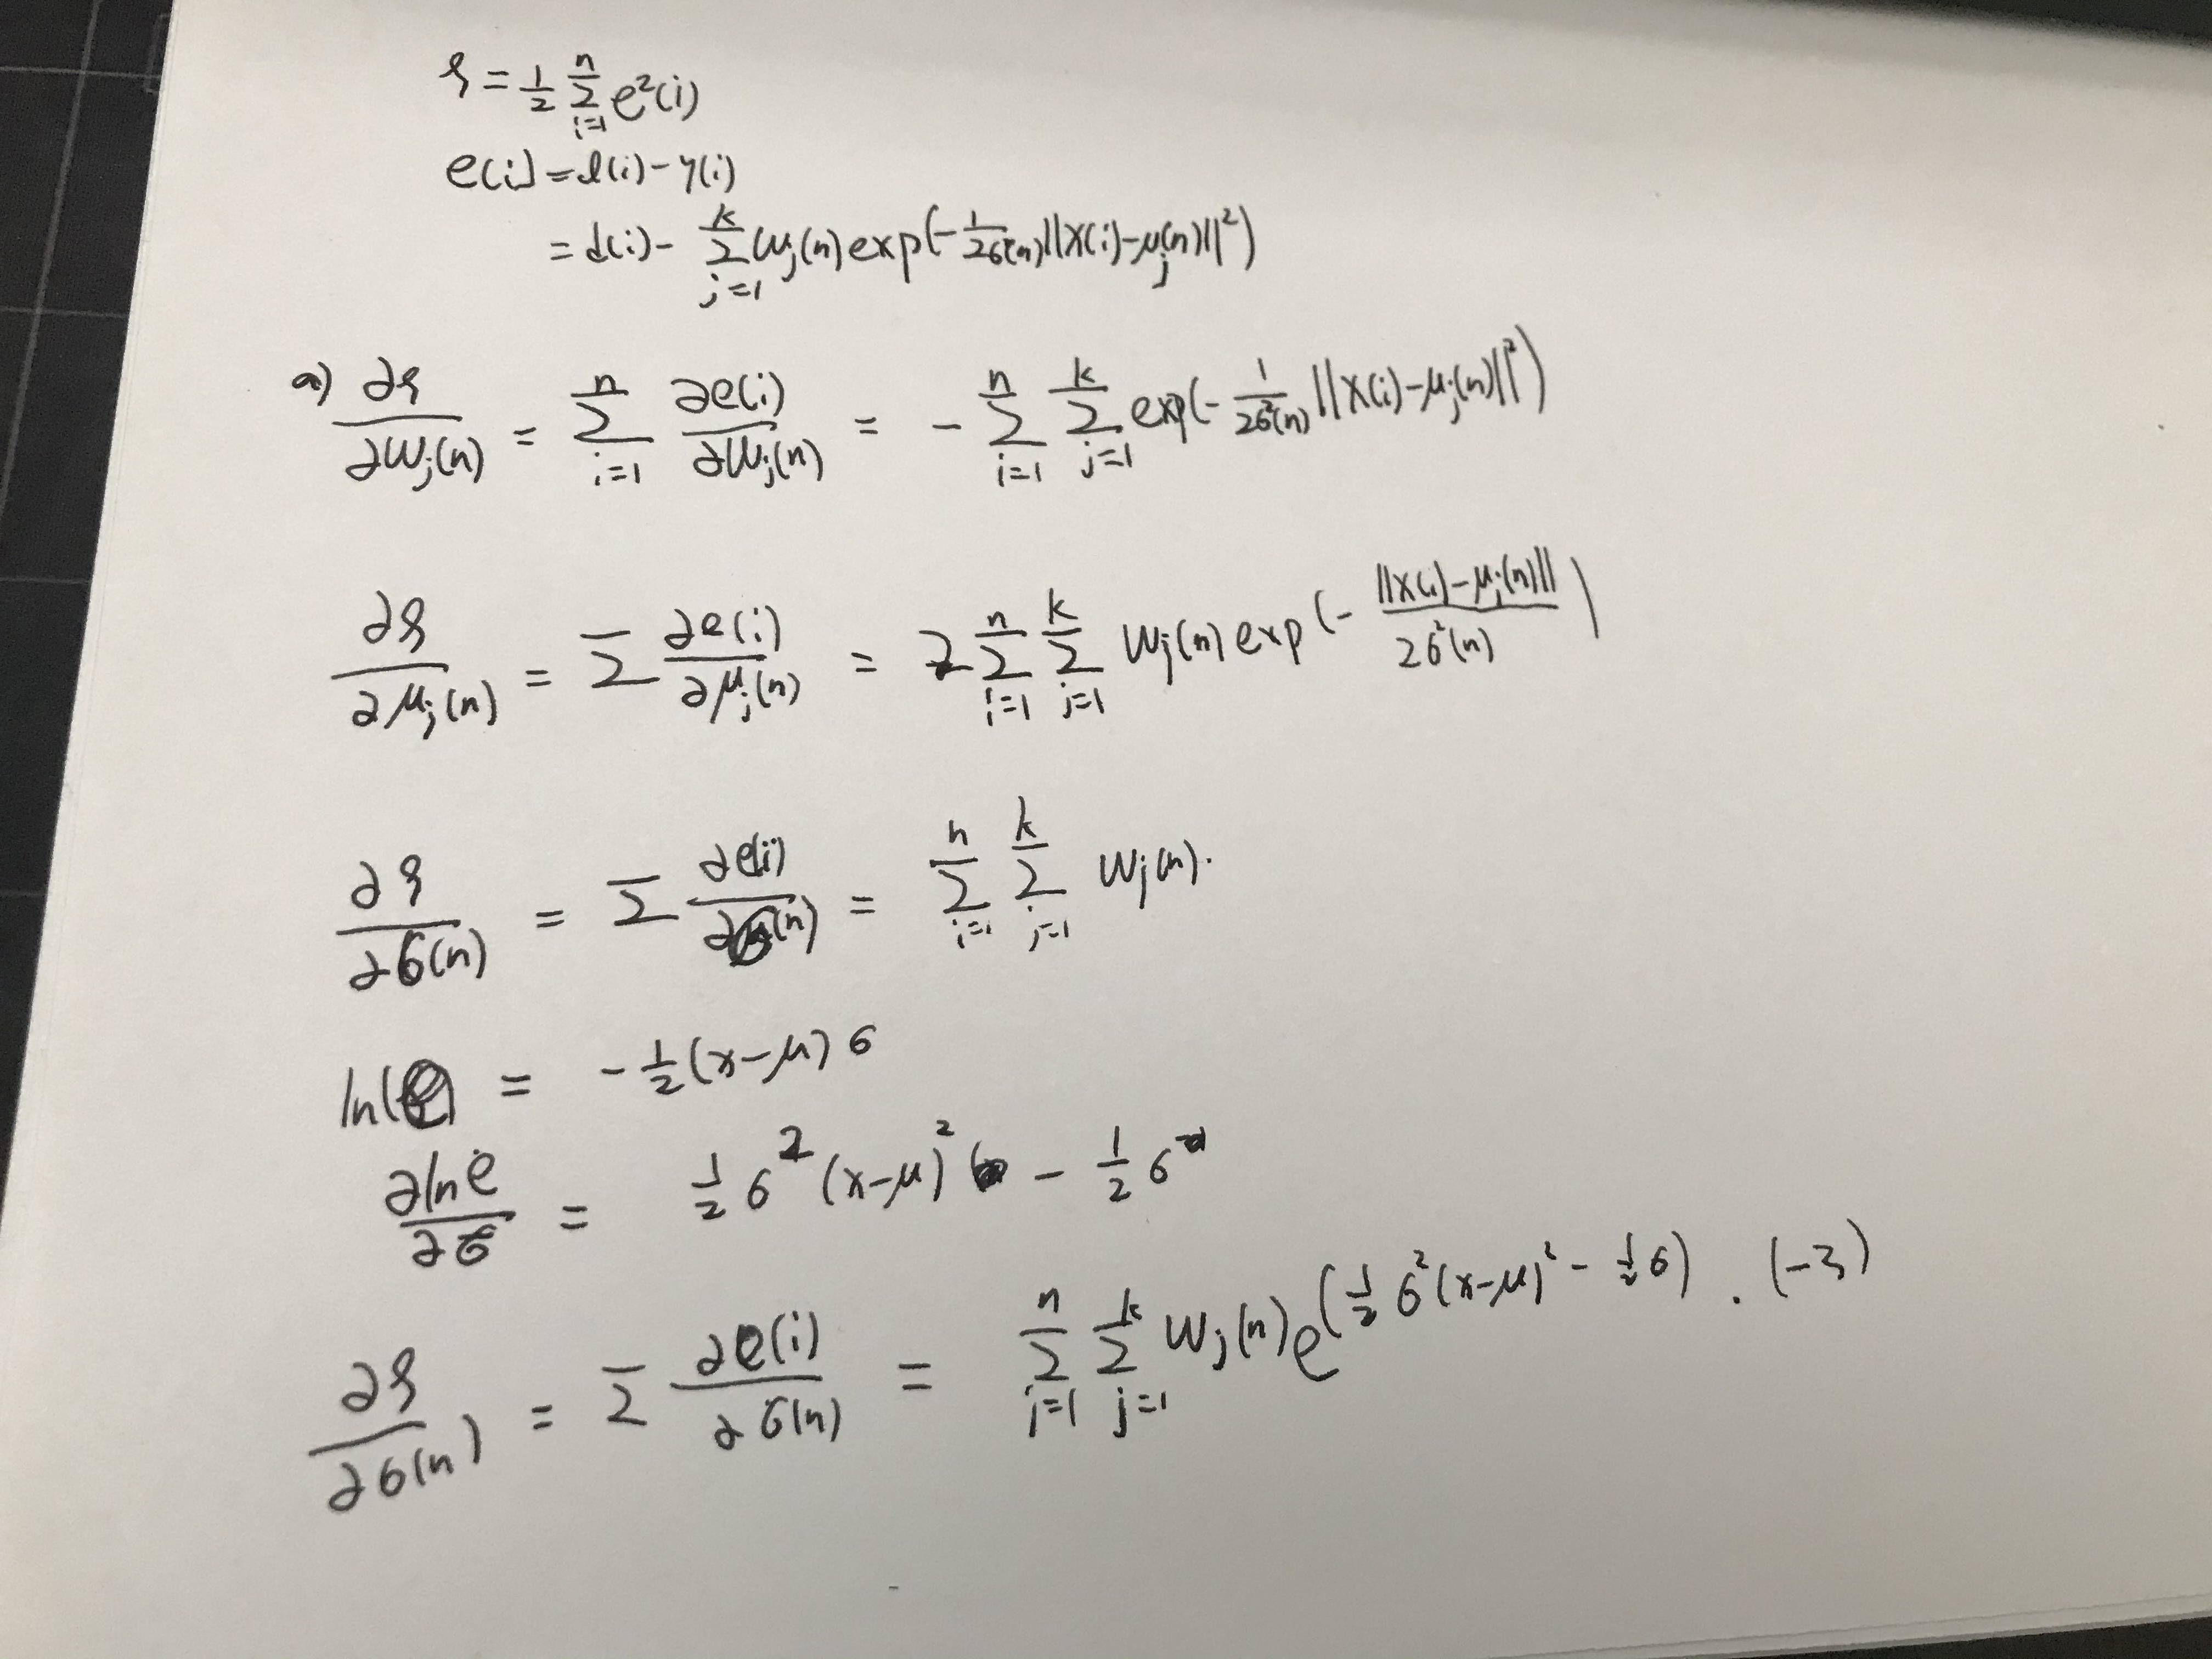 ξ = 1/2 Σ_{i=1}^{n} e²(i)
e(i) = d(i) - y(i)
= d(i) - Σ_{j=1}^{k} w_j(n) exp(- 1/2σ²(n) ||x(i) - μ_j(n)||²)
a) ∂ξ/∂w_j(n) = Σ_{i=1}^{n} ∂e(i)/∂w_j(n) = - Σ_{i=1}^{n} Σ_{j=1}^{k} exp(- 1/2σ²(n) ||x(i) - μ_j(n)||²)
∂ξ/∂μ_j(n) = Σ ∂e(i)/∂μ_j(n) = 2 Σ_{i=1}^{n} Σ_{j=1}^{k} w_j(n) exp(- ||x(i) - μ_j(n)||/2σ²(n))
∂ξ/∂σ(n) = Σ ∂e(i)/∂σ(n) = Σ_{i=1}^{n} Σ_{j=1}^{k} w_j(n).
ln(e) = - 1/2 (x-μ) σ
∂lne/∂σ = 1/2 σ² (x-μ)² - 1/2 σ
∂ξ/∂σ(n) = Σ ∂e(i)/∂σ(n) = Σ_{i=1}^{n} Σ_{j=1}^{k} w_j(n) e^(1/2 σ²(x-μ)² - 1/2 σ) · (-3)